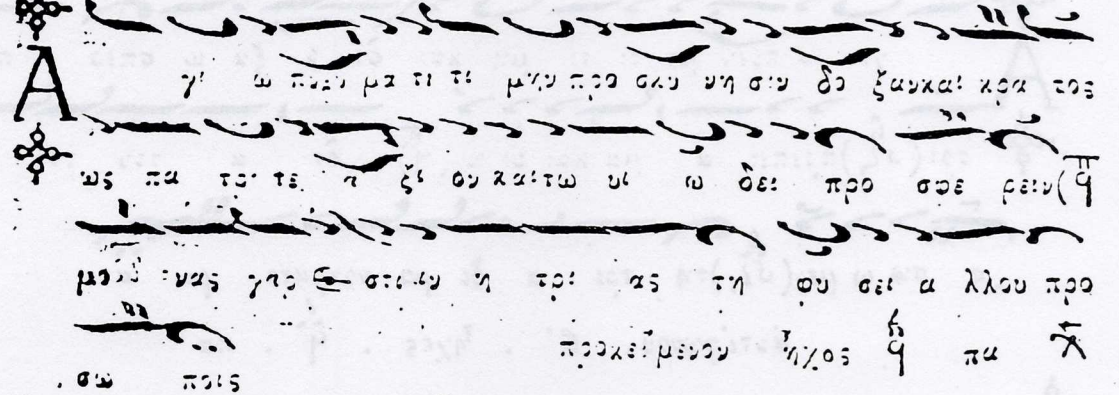 Α γι ω πνευ μα τι τι μην προ σκυ νη σιν δο ξαν και κρα τος
ως πα τρι τε α ξι ον και τω υι ω δει προ σφε ρειν
μο νας γαρ ε στιν η τρι ας τη φυ σει α λλου προ
σω ποις προκειμενου ηχος πα